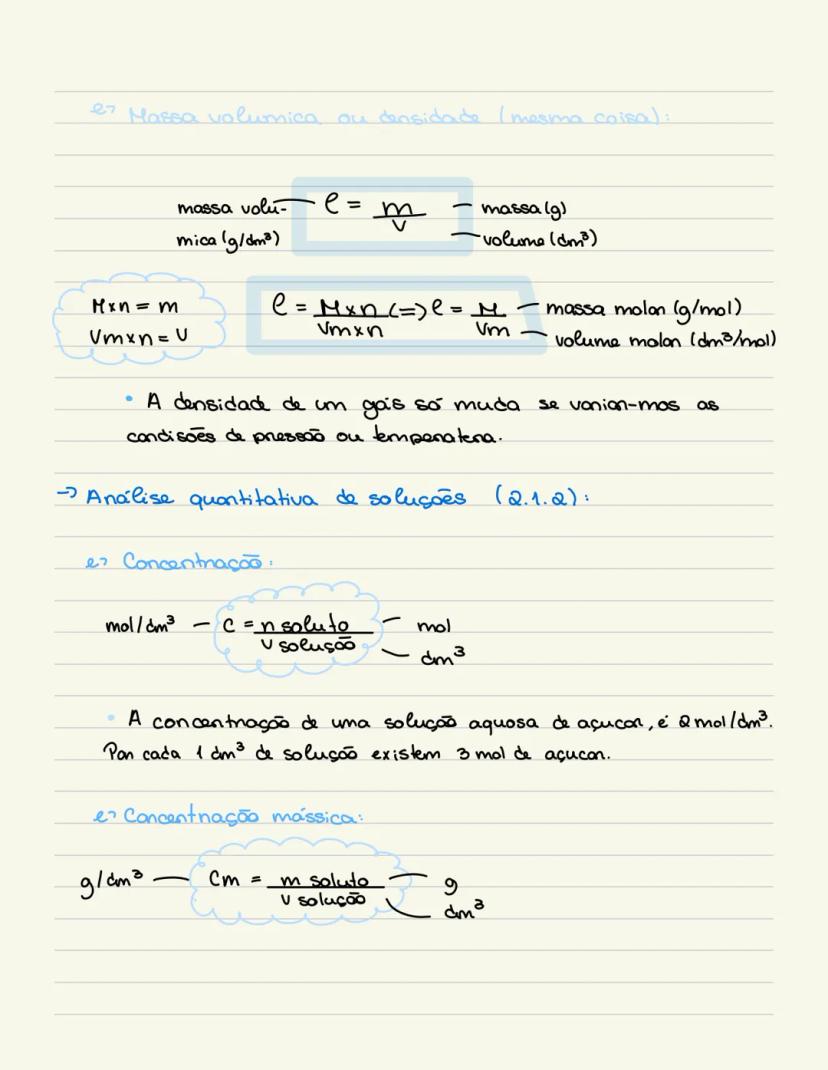 ↳ Massa volumica ou densidade (mesma coisa):
massa volu- — ρ = m/V — massa (g)
mica (g/dm³) — volume (dm³)
M×n = m
Vm×n = V
ρ = M×n/Vm×n (=) ρ = M/Vm — massa molar (g/mol)
— volume molar (dm³/mol)
• A densidade de um gáis só muda se variar-mos as
condisões de pressão ou temperatera.
→ Análise quantitativa de soluções (2.1.2):
↳ Concentração:
mol/dm³ — C = n soluto/V solução — mol
— dm³
• A concentração de uma solução aquosa de açucar, é 2 mol/dm³.
Por cada 1 dm³ de solução existem 3 mol de açucar.
↳ Concentração mássica:
g/dm³ — Cm = m soluto/V solução — g
— dm³